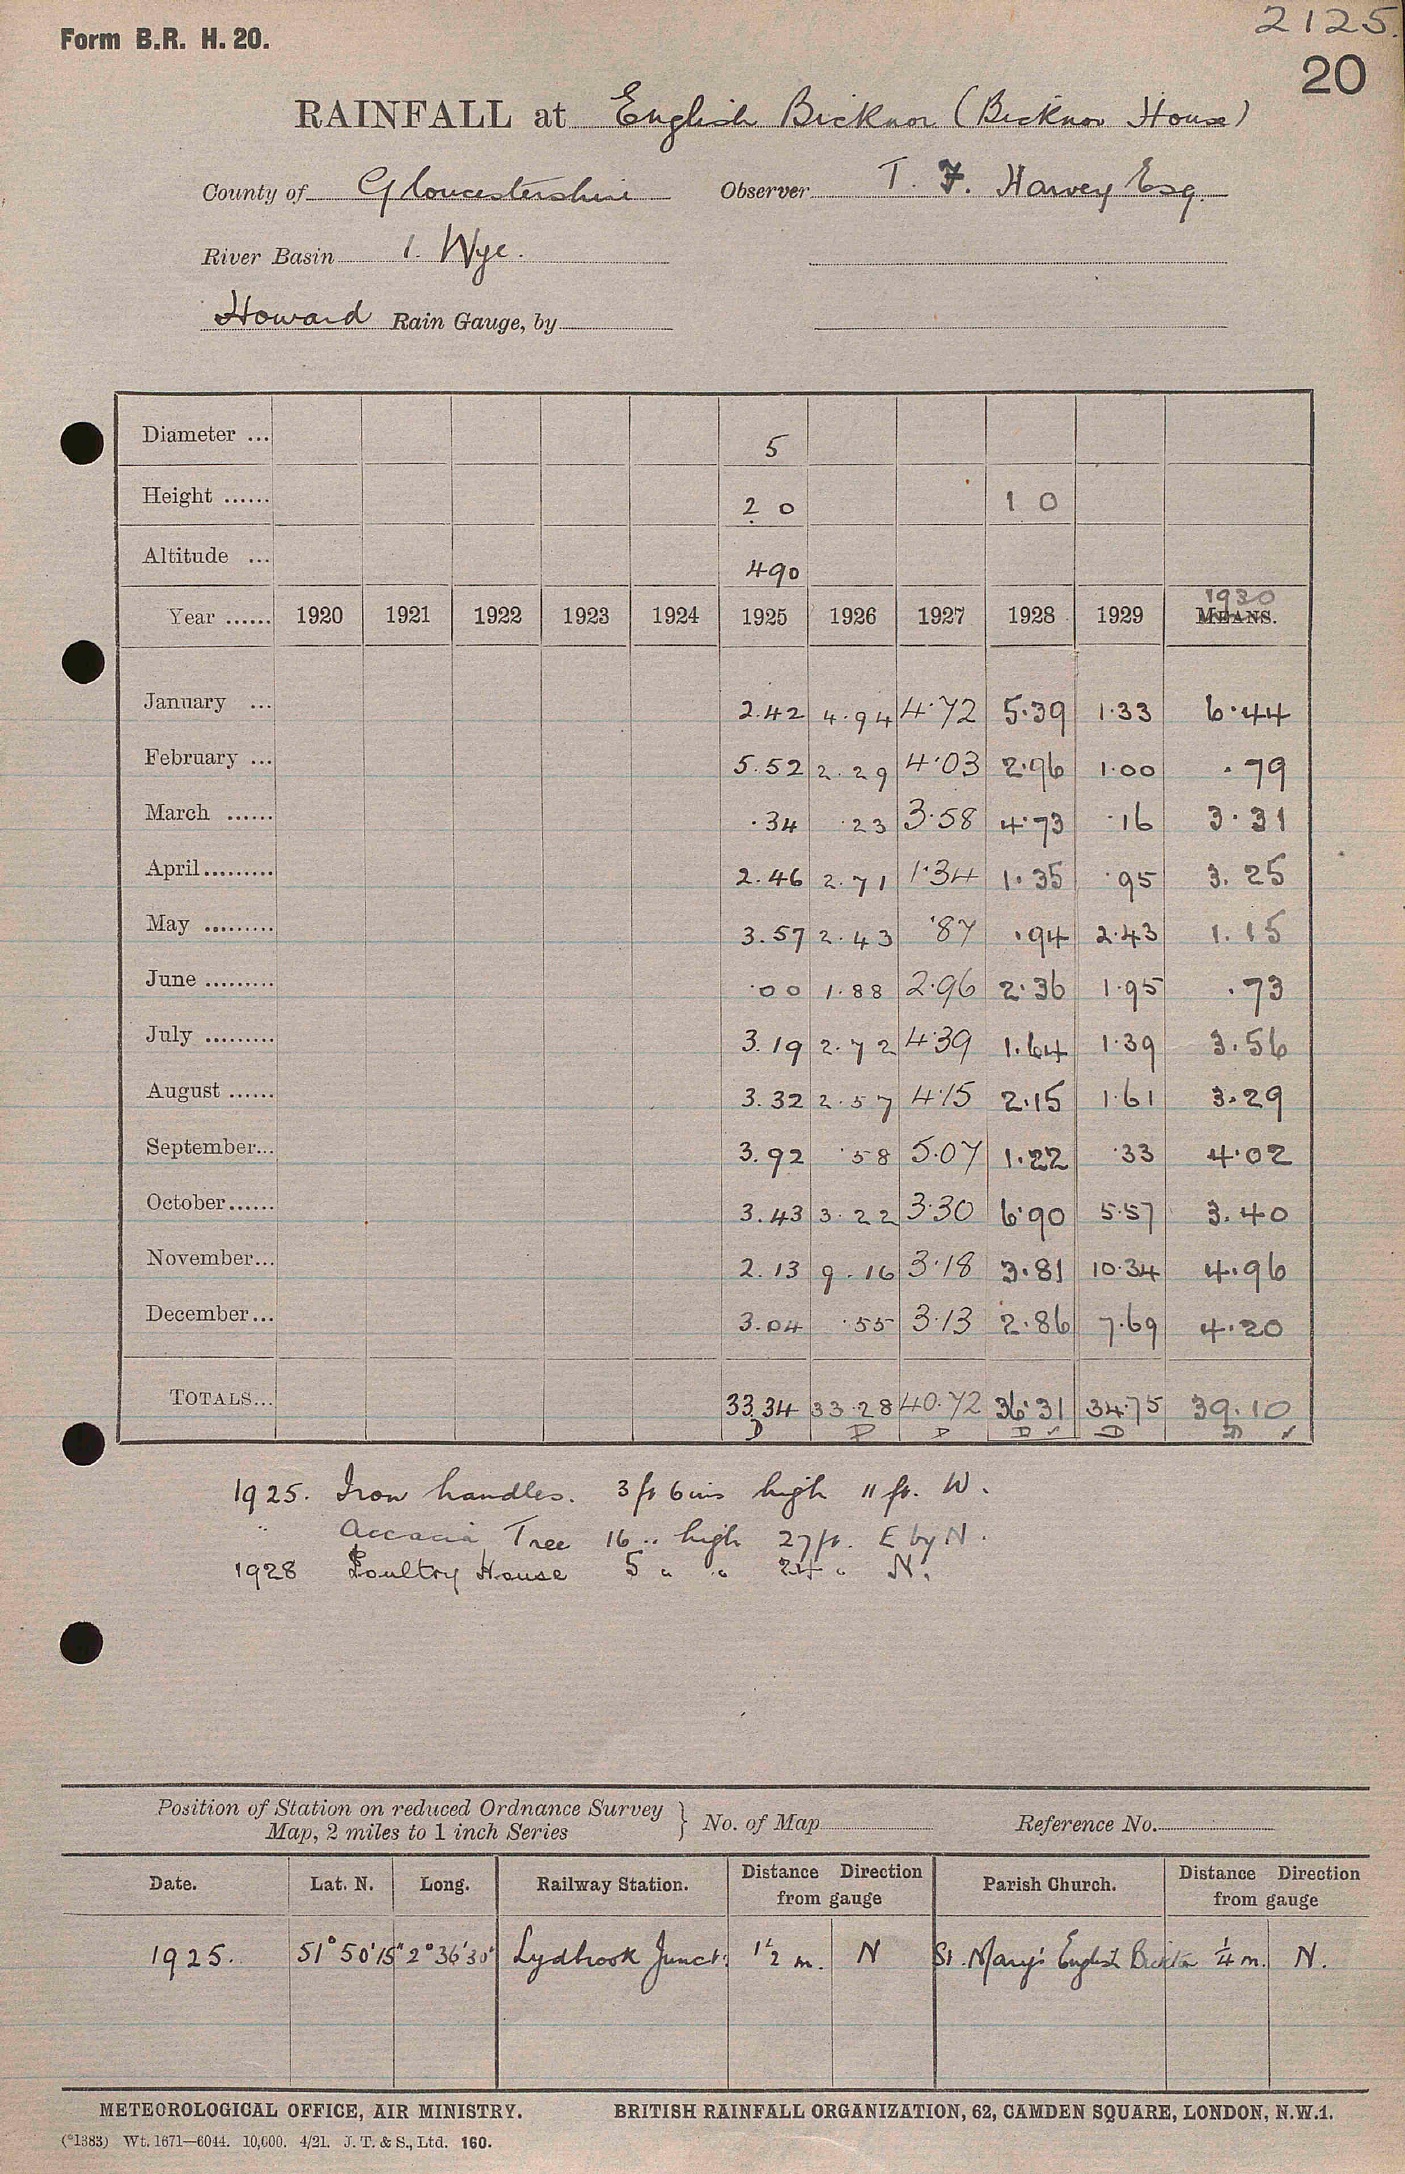 2125.
Form B.R. H. 20.
20
RAINFALL at English Bicknor (Bicknor House)
County of Gloucestershire Observer T. F. Harvey Esq.
River Basin 1. Wye.
Howard Rain Gauge, by
Diameter ... 5
Height ...... 2 0 1 0
Altitude ... 490
Year ...... 1920 1921 1922 1923 1924 1925 1926 1927 1928 1929 1930 MEANS.
January ... 2.42 4.94 4.72 5.39 1.33 6.44
February ... 5.52 2.29 4.03 2.96 1.00 .79
March ...... .34 .23 3.58 4.73 .16 3.31
April......... 2.46 2.71 1.34 1.35 .95 3.25
May ......... 3.57 2.43 .87 .94 2.43 1.15
June ......... .00 1.88 2.96 2.36 1.95 .73
July ......... 3.19 2.72 4.39 1.64 1.39 3.56
August ...... 3.32 2.57 4.15 2.15 1.61 3.29
September... 3.92 .58 5.07 1.22 .33 4.02
October...... 3.43 3.22 3.30 6.90 5.57 3.40
November... 2.13 9.16 3.18 3.81 10.34 4.96
December... 3.04 .55 3.13 2.86 7.69 4.20
TOTALS... 33.34 33.28 40.72 36.31 34.75 39.10
D D D D ✓ D D ✓
1925. Iron handles. 3 ft 6 ins high 11 ft. W.
" Accacia Tree 16 " high 27 ft. E by N.
1928 Poultry House 5 " " 24 " N.
Position of Station on reduced Ordnance Survey Map, 2 miles to 1 inch Series } No. of Map Reference No.
Date. Lat. N. Long. Railway Station. Distance Direction from gauge Parish Church. Distance Direction from gauge
1925. 51° 50' 15" 2° 36' 30" Lydbrook Junct: 1½ m. N St. Mary's English Bicknor ¼ m. N.
METEOROLOGICAL OFFICE, AIR MINISTRY. BRITISH RAINFALL ORGANIZATION, 62, CAMDEN SQUARE, LONDON, N.W.1.
(*1383) Wt. 1671—6044. 10,000. 4/21. J. T. & S., Ltd. 160.